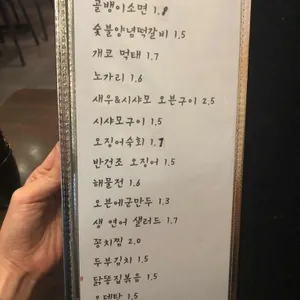 골뱅이소면 1.8
숯불양념떡갈비 1.5
개코 먹태 1.7
노가리 1.6
새우&시샤모 오븐구이 2.5
시샤모구이 1.5
오징어숙회 1.7
반건조 오징어 1.5
해물전 1.6
오븐에군만두 1.3
생 연어 샐러드 1.7
꽁치찜 2.0
두부김치 1.5
닭똥집볶음 1.5
오뎅탕 1.5